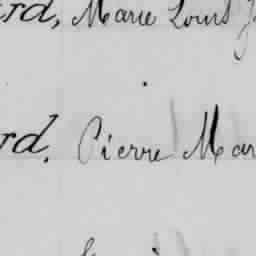 rd, Marie Louis J
rd, Pierre Mar